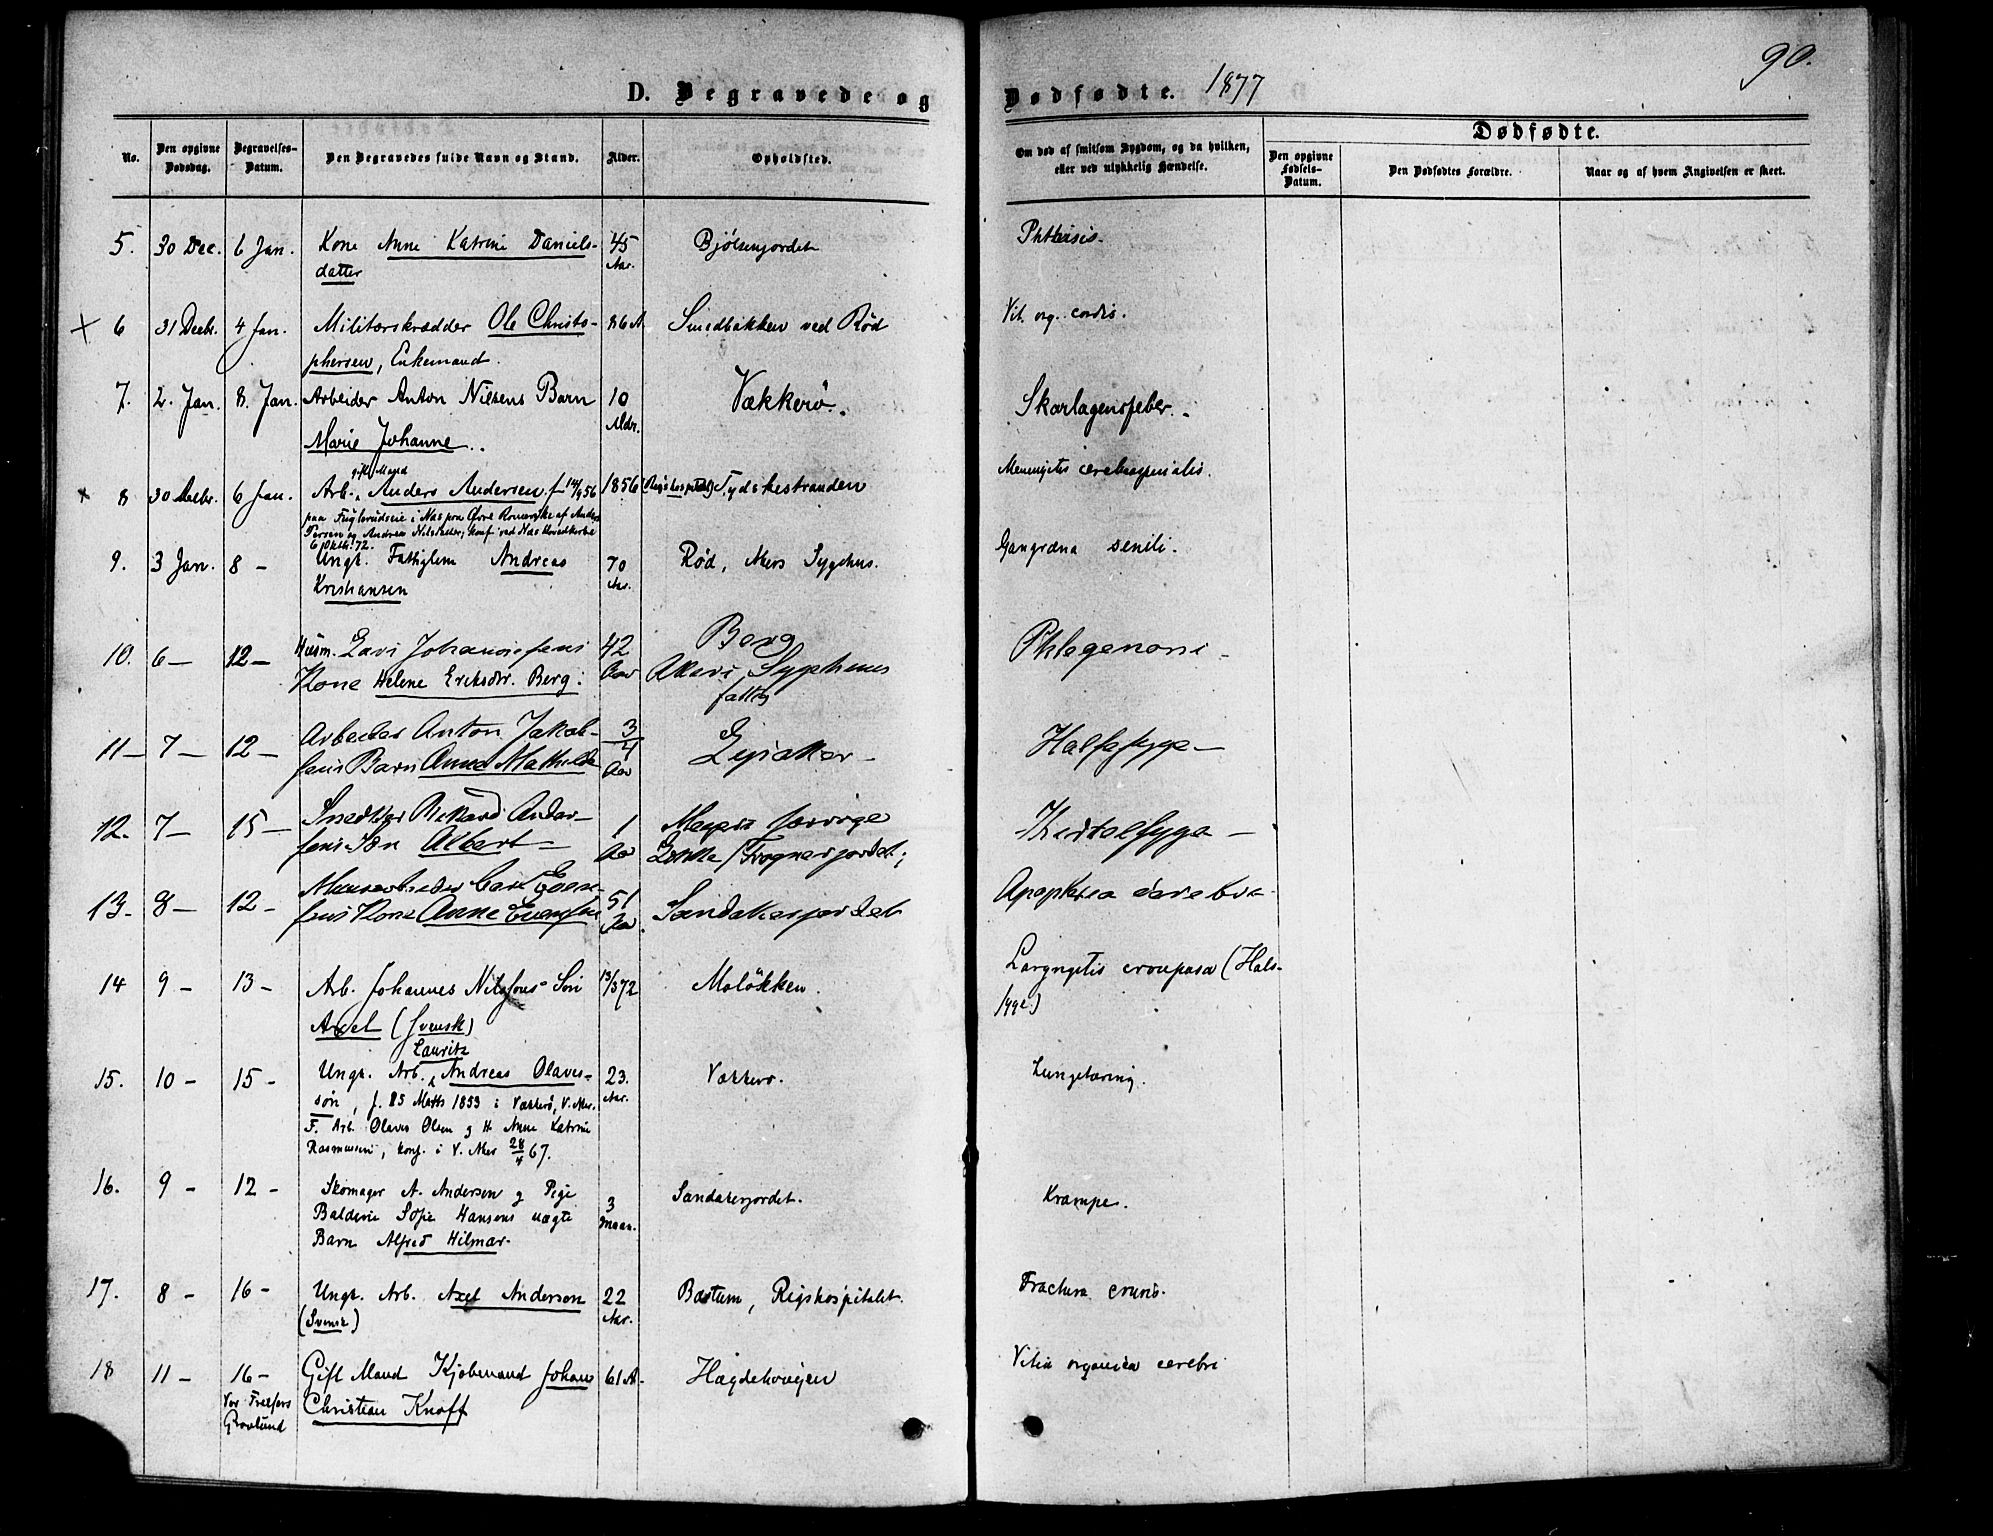 90.
D. Begravede og Dødfødte. 1877
No.
Den opgivne Dødsdag.
Begravelses-Datum.
Den Begravedes fulde Navn og Stand.
Alder.
Opholdsted.
Om død af smitsom Sygdom, og da hvilken,
eller ved ulykkelig Hændelse.
Dødfødte.
Den opgivne Fødsels-Datum.
Den Dødfødtes Forældre.
Naar og af hvem Angivelsen er skeet.
5. 30 Dec. 6 Jan. Kone Anne Katrine Daniels- 45 Bjölsenjordet Phthisis.
datter Aar.
6 31 Decbr. 4 Jan. Militærskrædder Ole Christo- 86 A Smedbakken ved Rød Vit. org. cordis.
phersen, Enkemand.
7. 2. Jan. 8. Jan. Arbeider Anton Nielsens Barn 10 Vækkerö. Skarlagensfeber.
Marie Johanne Mdr.
gift Mand
8 30 Decbr. 6 Jan. Arb. Anders Andersen f 14/9 56 1856 (Rigshospitalet) Tydskestranden Meningitis cerebrospinalis.
paa i Næs pra Øvre Romerike af Anders
og Andrea konf. ved Næs Hovedkirke
6 Oktbr. 72.
9. 3 Jan. 8 - Ungk. Fattiglem Andreas 70 Rød, Akers Sygehus. Gangræna senili.
Kristiansen Aar.
10. 6 - 12 - Husm. Lars Johannesens 42 Berg Phlegmone
Kone Helene Eriksdtr. Berg. Aar Akers Sygehuus
fattig
11 - 7 - 12 - Arbeider Anton Jakob- 3/4 Halsesyge
sens Barn Anna Mathilde Aar
12. 7 - 15 - Snedker Rikard Ander- 1 Kirtelsyge
sens Søn Albert Aar Løkke / Frognerjordet
13 - 8 - 12 - Murarbeider Carl Even- 51 Sandakerjordet Apoplexia cerebri
sens Kone Anne Evensen Aar
14 9 - 13 - Arb. Johannes Nilssons Sön 13/3 72 Moløkken. Laryngitis crouposa (Hals-
Axel (svensk) syge)
Lauritz
15. 10 - 15 - Ungk. Arb. Andreas Olaves- 23. Vækkerö. Lungetæring.
sön, f. 25 Marts 1853 i Vækkerö, V. Aker. Aar.
F. Arb. Olaves Olsen og H Anne Katrine
Rasmussen, konf. i V. Aker 28/4 67.
16. 9 - 12 - Skomager A. Andersen og Pige 3 Sandakerjordet. Krampe.
Balderie Sofie Hansens uægte Maan.
Barn Alfred Hilmar.
17. 8 - 16 - Ungk. Arb. Axel Andersen 22 Bæstum, Rigshospitalet. Fractura cruris.
(Svensk) Aar.
18 11 - 16 - Gift Mand Kjøbmand Johan 61 A Hægdehougen Vitia organica cerebri
Vor Frelsers Christian Knoff
Gravlund